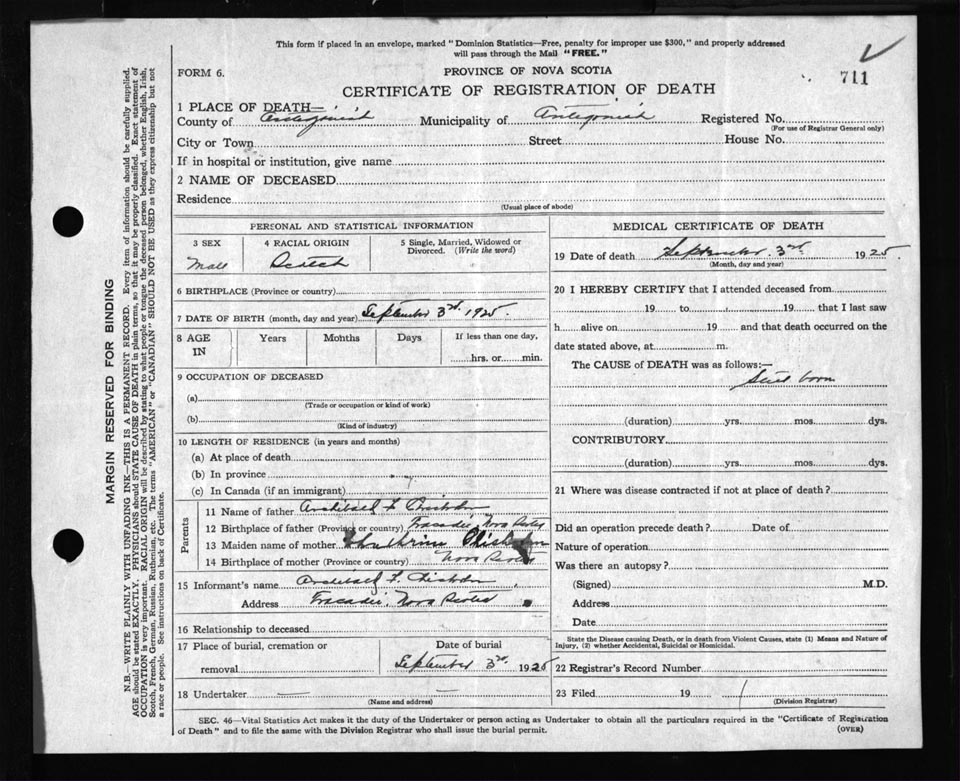 This form if placed in an envelope, marked "Dominion Statistics—Free, penalty for improper use $300," and properly addressed
will pass through the Mail "FREE."
FORM 6.
PROVINCE OF NOVA SCOTIA
711
CERTIFICATE OF REGISTRATION OF DEATH
1 PLACE OF DEATH—
County of Antigonish Municipality of Antigonish Registered No.
(For use of Registrar General only)
City or Town Street House No.
If in hospital or institution, give name
2 NAME OF DECEASED
Residence
(Usual place of abode)
PERSONAL AND STATISTICAL INFORMATION
3 SEX 4 RACIAL ORIGIN 5 Single, Married, Widowed or
Divorced. (Write the word)
Male Scotch
6 BIRTHPLACE (Province or country)
7 DATE OF BIRTH (month, day and year) September 3rd 1925
8 AGE Years Months Days If less than one day,
IN hrs. or min.
9 OCCUPATION OF DECEASED
(a)
(Trade or occupation or kind of work)
(b)
(Kind of industry)
10 LENGTH OF RESIDENCE (in years and months)
(a) At place of death
(b) In province
(c) In Canada (if an immigrant)
Parents
11 Name of father Archibald Chisholm
12 Birthplace of father (Province or country) Tracadie, Nova Scotia
13 Maiden name of mother Chisholm
14 Birthplace of mother (Province or country) Nova Scotia
15 Informant's name Archibald Chisholm
Address Tracadie, Nova Scotia
16 Relationship to deceased
17 Place of burial, cremation or Date of burial
removal September 3rd 1925
18 Undertaker
(Name and address)
MEDICAL CERTIFICATE OF DEATH
19 Date of death September 3rd 1925
(Month, day and year)
20 I HEREBY CERTIFY that I attended deceased from
19 to 19 that I last saw
h alive on 19 and that death occurred on the
date stated above, at m.
The CAUSE of DEATH was as follows:—
Still born
(duration) yrs. mos. dys.
CONTRIBUTORY
(duration) yrs. mos. dys.
21 Where was disease contracted if not at place of death?
Did an operation precede death? Date of
Nature of operation
Was there an autopsy?
(Signed) M.D.
Address
Date
State the Disease causing Death, or in death from Violent Causes, state (1) Means and Nature of
Injury, (2) whether Accidental, Suicidal or Homicidal.
22 Registrar's Record Number
23 Filed 19
(Division Registrar)
SEC. 46—Vital Statistics Act makes it the duty of the Undertaker or person acting as Undertaker to obtain all the particulars required in the "Certificate of Registration
of Death" and to file the same with the Division Registrar who shall issue the burial permit.
(OVER)
MARGIN RESERVED FOR BINDING
N.B.—WRITE PLAINLY WITH UNFADING INK—THIS IS A PERMANENT RECORD. Every item of information should be carefully supplied.
AGE should be stated EXACTLY. PHYSICIANS should STATE CAUSE OF DEATH in plain terms, so that it may be properly classified. Exact statement of
OCCUPATION is very important. RACIAL ORIGIN will be described by stating to what people or tongue the deceased person belonged, whether English, Irish,
Scotch, French, German, Russian, Ruthenian, etc. The terms "AMERICAN" or "CANADIAN" SHOULD NOT BE USED as they express citizenship but not
a race or people. See instructions on back of Certificate.